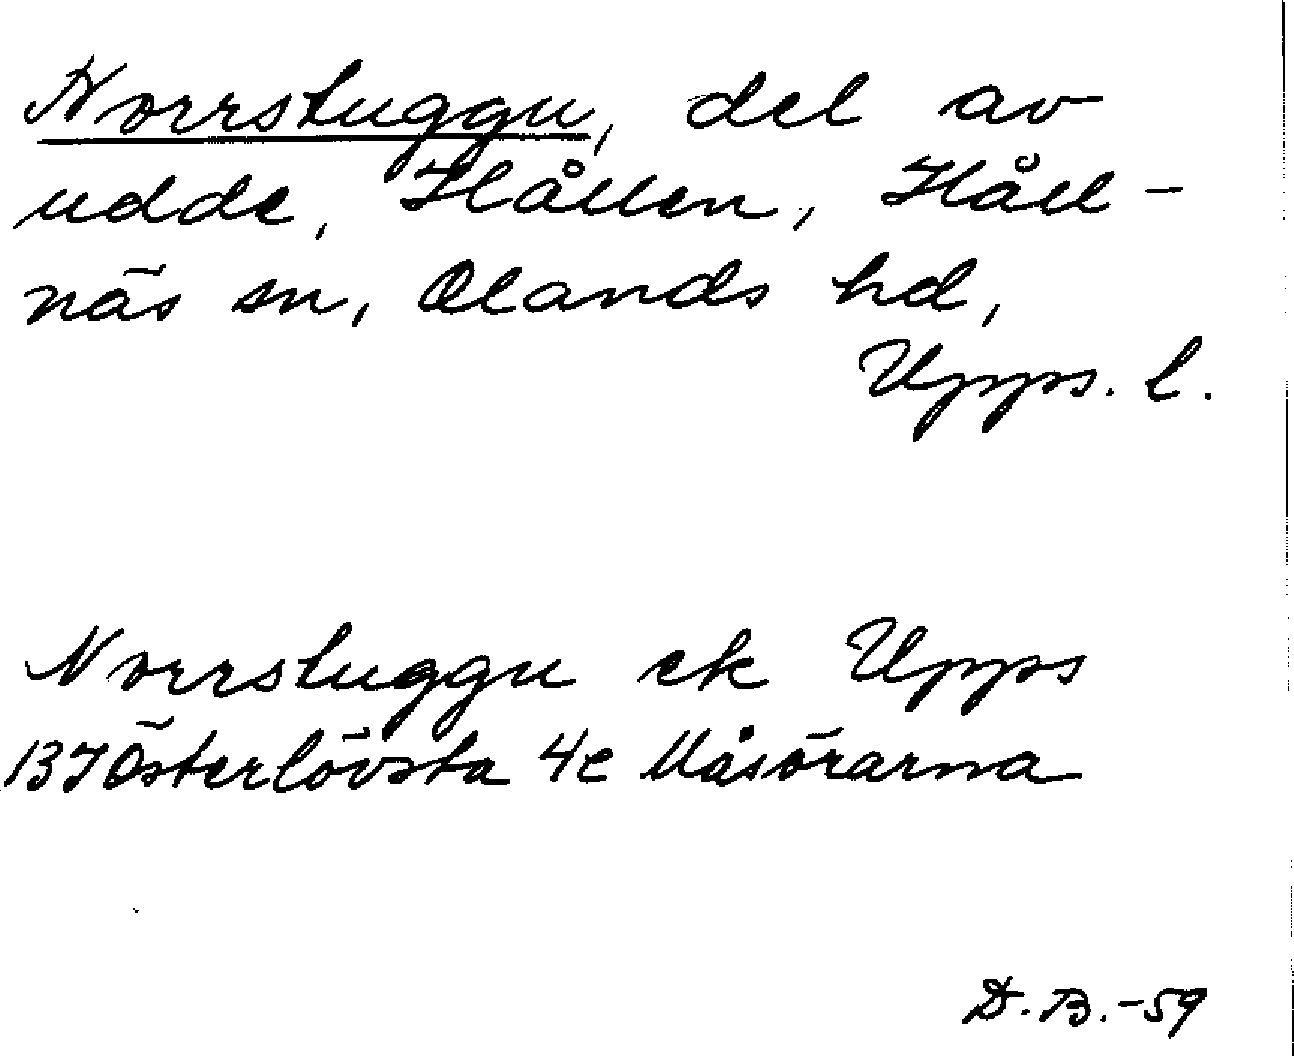 Norrstuggu, del av
udde, Hållen, Håll-
näs sn, Olands hd,
Upps. l.
Norrstuggu ek Upps
13I Österlövsta 4e Måsörarna
D.B.-59